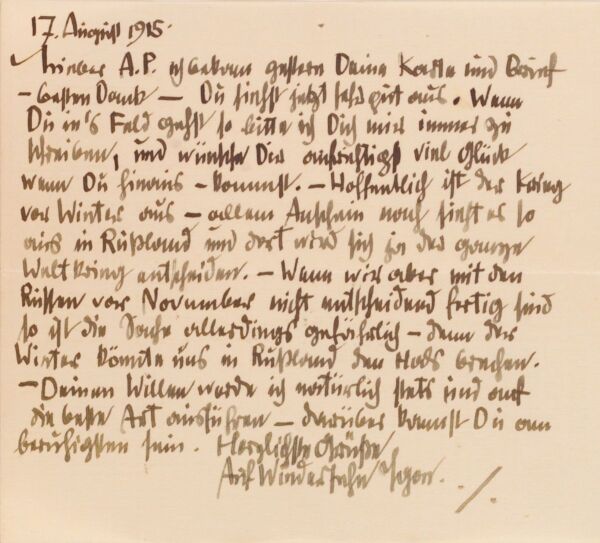 17. August 1915.
Lieber A.P. ich bekam gestern Deine Karte und Brief
– besten Dank – Du siehst jetzt sehr gut aus. Wenn
Du in's Feld gehst so bitte ich Dich mir immer zu
schreiben, und wünsche Dir aufrichtigst viel Glück
wenn Du hinaus – kommst. – Hoffentlich ist der Krieg
vor Winter aus – allem Anschein nach sieht es so
aus in Rußland und dort wird sich ja der ganze
Weltkrieg entscheiden. – Wenn wir aber mit den
Russen vor November nicht entscheidend fertig sind
so ist die Sache allerdings gefährlich – denn der
Winter könnte uns in Rußland den Hals brechen.
– Deinen Willen werde ich natürlich stets und auf
die beste Art ausführen – darüber kannst Du am
beruhigsten sein. Herzlichste Grüße
Auf Wiedersehn Egon.